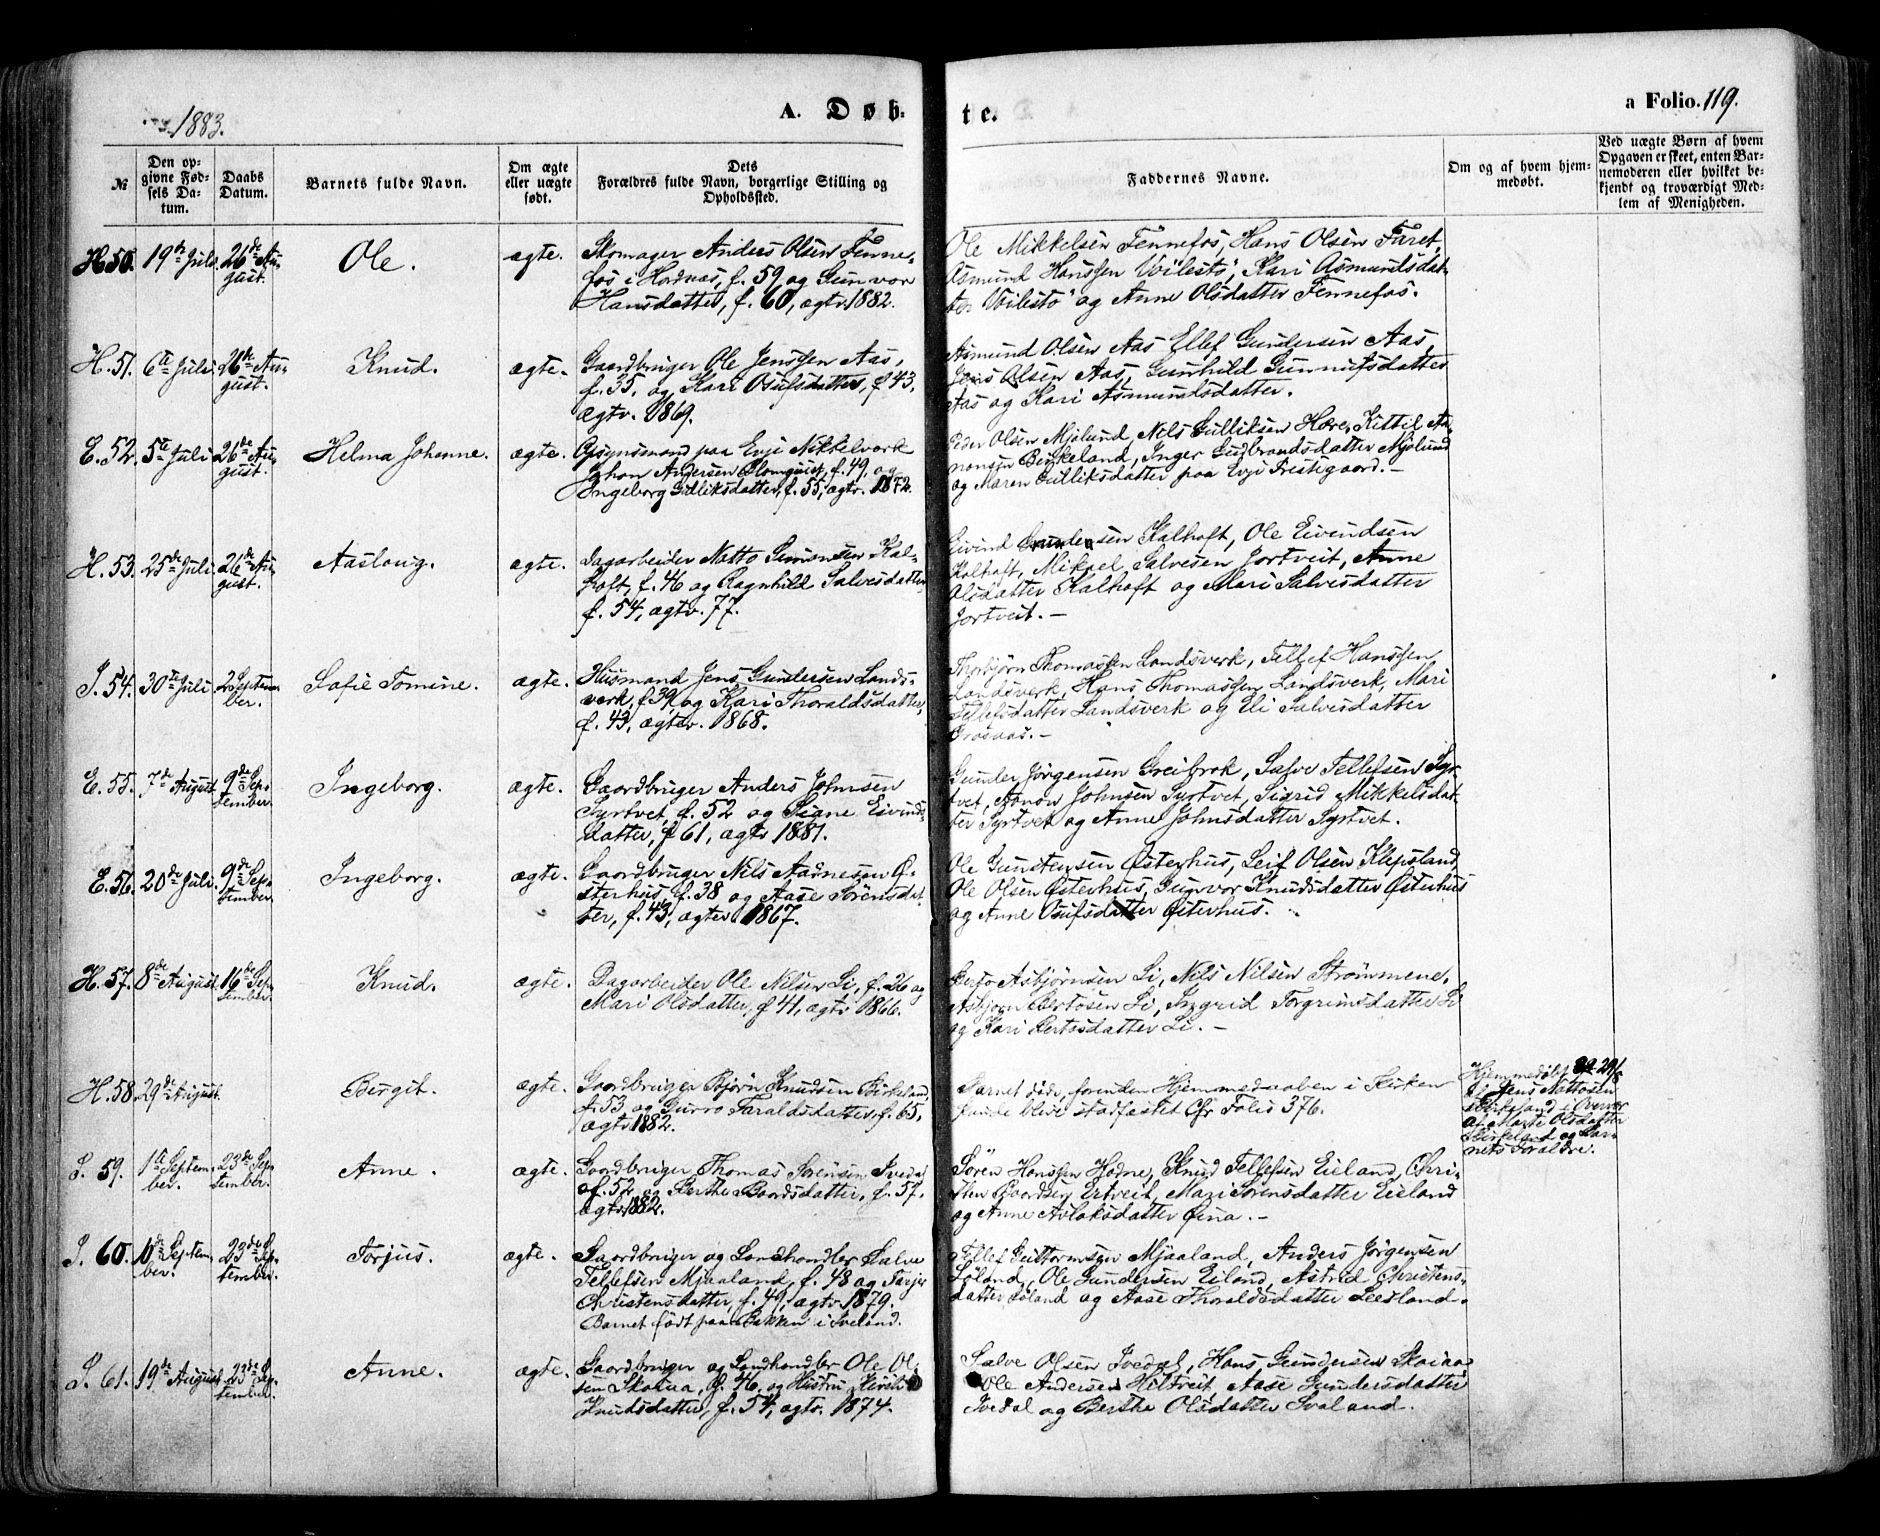 1883.
A. Døb-
te.
a Folio. 119.
№
Den op-
givne Fød-
sels Da-
tum.
Daabs
Datum.
Barnets fulde Navn.
Om ægte
eller uægte
født.
Dets
Forældres fulde Navn, borgerlige Stilling og
Opholdssted.
Faddernes Navne.
Om og af hvem hjem-
medøbt.
Ved uægte Børn af hvem
Opgaven er skeet, enten Bar-
nemoderen eller hvilket be-
kjendt og troværdigt Med-
lem af Menigheden.
H. 50.
19de Juli
26de Au-
gust.
Ole.
ægte.
Skomager Anders Olsen Fenne-
fos i Hodnas, f. 59, og Gunvor
Hansdatter, f. 60, ægtv 1882.
Ole Mikkelsen Fennefos, Hans Olsen Faret,
Asmund Hanssen Voilestø, Kari Asmundsdat-
ter Voilestø og Anne Olsdatter Fennefos.
H. 51.
6te Juli
26de Au-
gust.
Knud.
ægte.
Gaardbruger Ole Jenssen Aas,
f. 35, og Kari Osulsdatter, f 43,
ægtv. 1869.
Asmund Olsen Aas, Ellef Gundersen Aas,
Jens Olsen Aas, Gunhild Gunnufsdatter
Aas og Kari Asmundsdatter.
E. 52.
5te Juli
26de Au-
gust.
Helma Johanne.
ægte.
Opsynsmand paa Evje Nikkelverk
Johan Andersen Blomquist, f. 49, og
Ingeborg Gulliksdatter, f. 55, ægtv. 1872.
Peder Olsen Mjølund, Nils Gulliksen Hære, Kittil Aa-
nonsen Birkeland, Inger Gudbrandsdatter Mjølund
og Maren Gulliksdatter paa Evje Prestegaard. -
H. 53.
25de Juli
26de Au-
gust.
Aaslaug.
ægte.
Dagarbeider Natto Simonsen Kal-
hoft, f. 46 og Ragnhild Salvesdatter
f. 54, ægtv. 77.
Eivind Gundersen Kalhoft, Ole Eivindsen
Kalhoft, Mikael Salvesen Jortveit, Anne
Olsdatter Kalhoft og Mari Salvesdatter
Jortveit. -
I. 54.
30te Juli
2 Septem-
ber.
Sofie Tomine.
ægte.
Husmand Jens Gundersen Lands-
verk, f. 39 og Kari Thoraldsdatter,
f. 43, ægtev. 1868.
Thorbjørn Thomassen Landsverk, Tellef Hanssen
Landsverk, Hans Thomassen Landsverk, Mari
Tellefsdatter Landsverk og Eli Salvesdatter
Grosaas. -
E. 55.
7de August
9de Sep-
tember.
Ingeborg.
ægte.
Gaardbruger Anders Johnsen
Syrtvet, f. 52 og Signe Eivinds-
datter, f 61, ægtv 1881.
Gunder Jørgensen Greibrok, Salve Tellefsen Syr-
tvet, Aanon Johnsen Syrtvet, Sigrid Mikkelsdat-
ter Syrtvet og Anne Johnsdatter Syrtvet.
E. 56.
20de Juli.
9de Sep-
tember.
Ingeborg.
ægte.
Gaardbruger Nils Aadnesen Ø-
sterhus, f. 38 og Aase Sørensdat-
ter, f. 43, ægtev 1867.
Ole Gunstensen Østerhus, Leif Olsen Klepsland,
Ole Olsen Østerhus, Gunvor Knudsdatter Østerhus
og Anne Osufsdatter Østerhus.
H. 57.
8de August
16de Sep-
tember.
Knud.
ægte.
Dagarbeider Ole Nilsen Li, f. 26 og
Mari Olsdatter, f 41, ægtv 1866.
Berto Asbjørnsen Li, Nils Nilsen Strømmene,
Asbjørn Bertosen Li, Ingrid Torgrimsdatter Li
og Kari Bertosdatter Li. -
H. 58.
29de August.
Bergit.
ægte.
Gaardbruger Bjørn Knudsen Birkeland,
f. 53 og Gurro Taraldsdatter, f. 65,
ægtv 1882.
Barnet døde, forinden Hjemmedaaben i Kirken
kunde blive stadfæstet Cfr Folio 376.
Hjemmedøbt 29/8
af Jens Nattosen
Birkeland i Overvær
af Marte Olsdatter
Birkeland og Bar-
nets Forældre.
I. 59.
1ste Septem-
ber.
23de Sep-
tember.
Anne.
ægte.
Gaardbruger Thomas Sørensen Ivedal
f. 52 og Berthe Baardsdatter, f. 57,
ægtv 1882.
Søren Hanssen Hodne, Knud Tellefsen Eieland, Chri-
sten Baardsen Ertveit, Mari Sørensdatter Eieland
og Anne Avlaksdatter Øina. -
I. 60.
10de Septem-
ber.
23de Sep-
tember.
Torjus.
ægte.
Gaardbruger og Landhandler Salve
Tellefsen Mjaaland, f. 48 og Torjer
Christensdatter, f. 49, ægtv 1879.
Barnet født paa Bakken i Sveland.
Tellef Guttormsen Mjaaland, Anders Jørgensen
Løland, Ole Gundersen Eiland, Astrid Christens-
datter Løland og Aase Thoraldsdatter Leesland.
I. 61.
19de August
23de Sep-
tember.
Anne.
ægte.
Gaardbruger og Landhandler Ole Ol-
sen Skaiaa, f. 46, og Hustru Kirsti
Knudsdatter, f. 54, ægtv. 1874.
Salve Olsen Ivedal, Hans Gundersen Skaiaa
Ole Andersen Hiltveit, Aase Gundersdatter
Ivedal og Berthe Olsdatter Svaland.